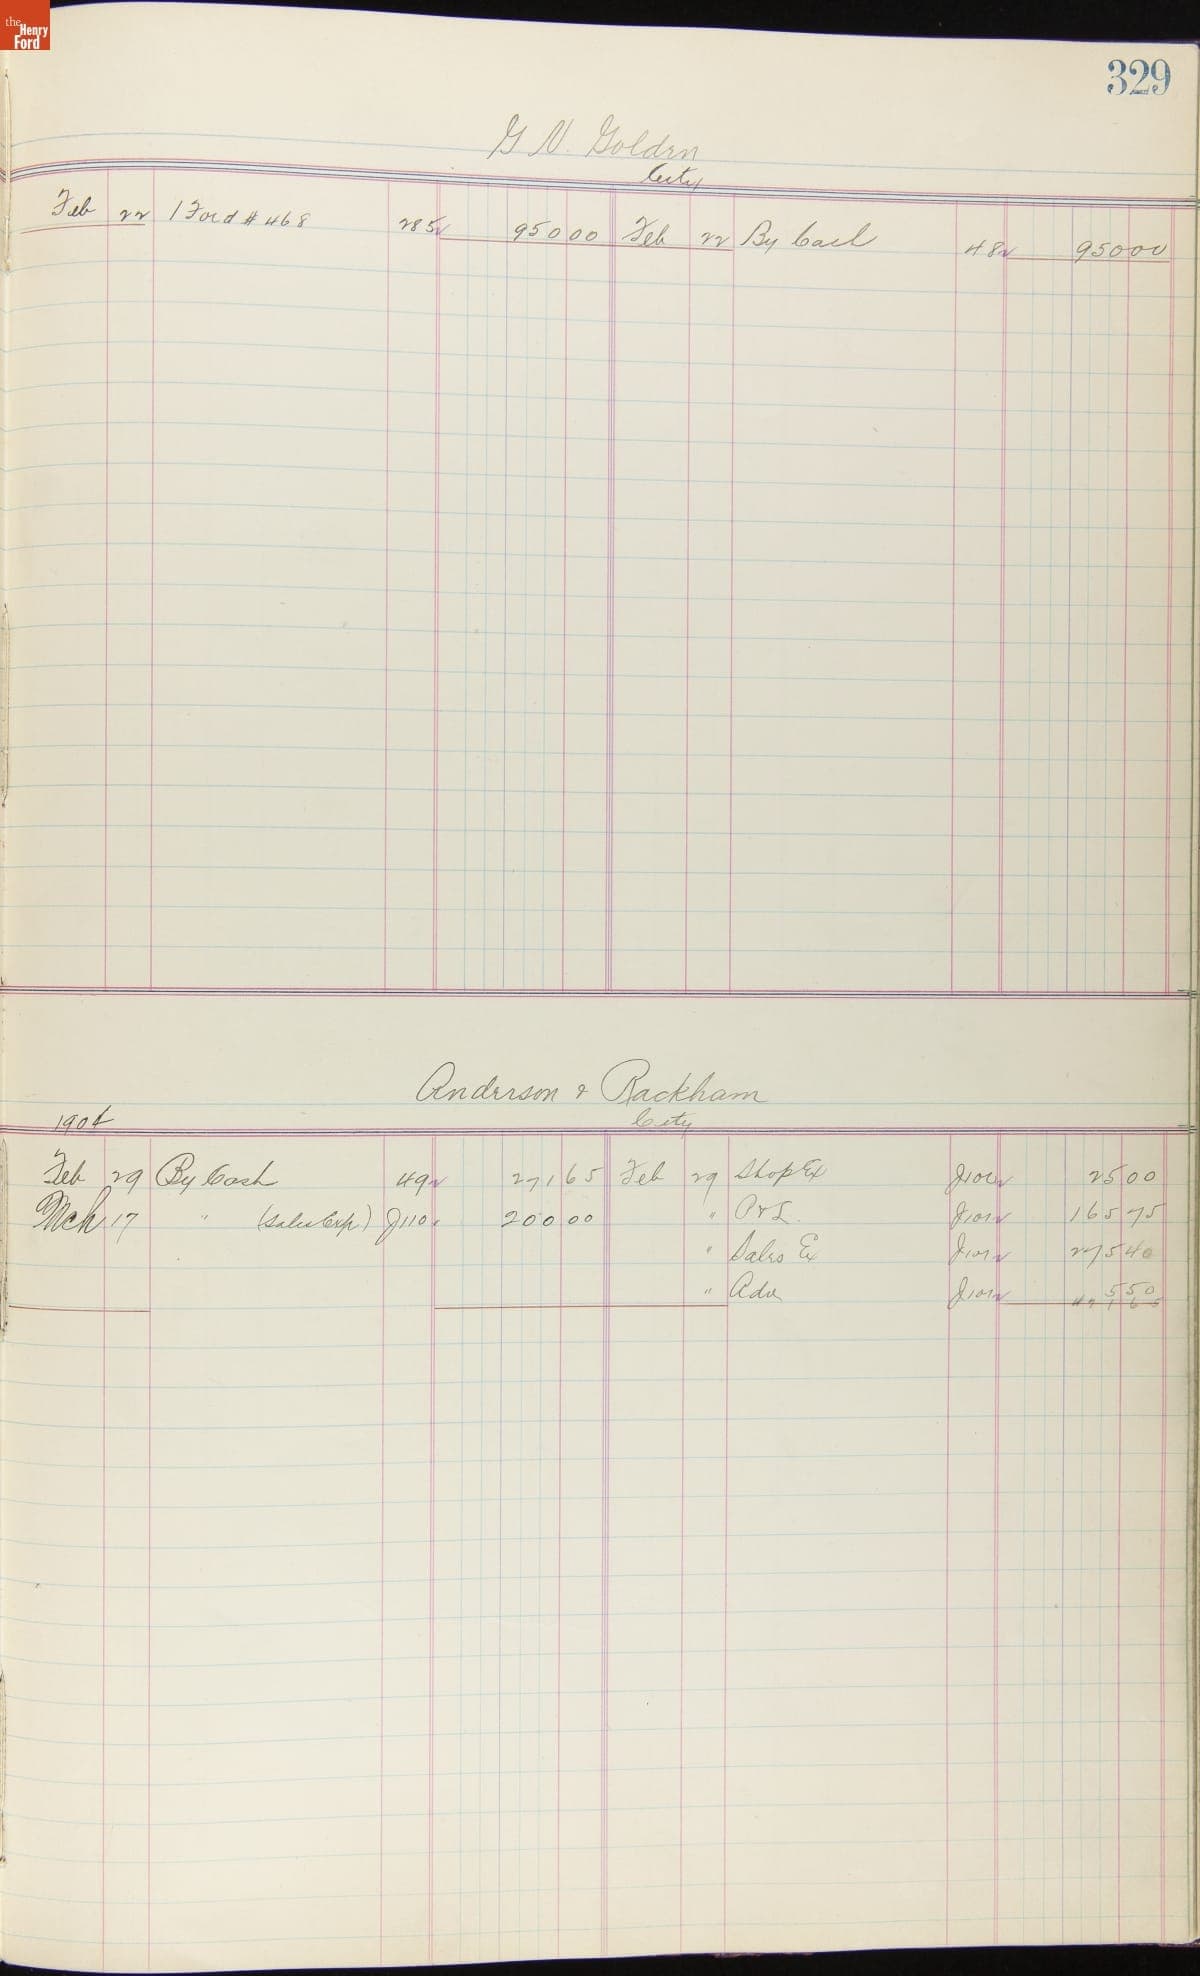 the Henry Ford
329
G N. Golden
City
Feb 22 1 Ford # 468 285 950 00 Feb 22 By Cash 48 950 00
Anderson & Rackham
1904 City
Feb 29 By Cash 49 271 65 Feb 29 Shop Ex J101 25 00
Mch 17 " (Sales Exp) J110 200 00 " P & L. J101 165 75
" Sales Ex J101 275 40
" Adv J101 5 50
471 65